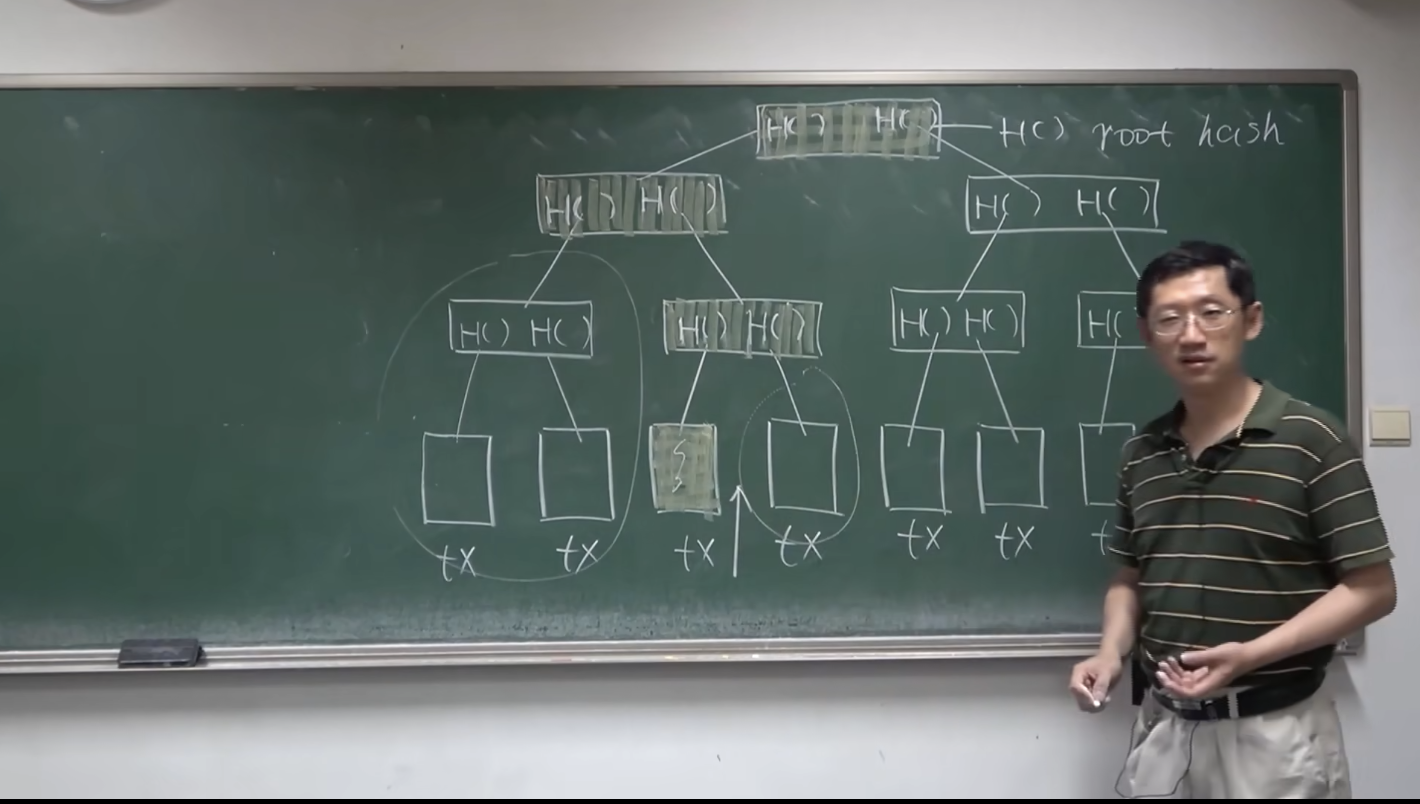 H( ) H( ) H( ) root hash
H( ) H( ) H( ) H( )
H( ) H( ) H( ) H( ) H( ) H( ) H(
tx tx tx tx tx tx t